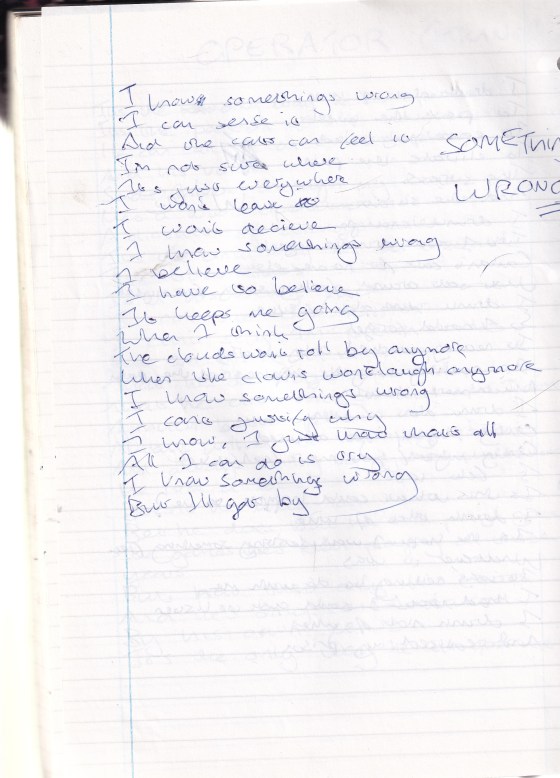 I know somethings wrong
I can sense it
And the cats can feel it
SOMETHIN
I'm not sure where
Its just everywhere
WRONG
I won't leave
I won't decieve
I know somethings wrong
I believe
I have to believe
It keeps me going
When I think
The clouds won't roll by anymore
When the clowns wont laugh anymore
I know somethings wrong
I cant justify why
I know, I just know that's all
All I can do is try
I know somethings wrong
But I'll get by